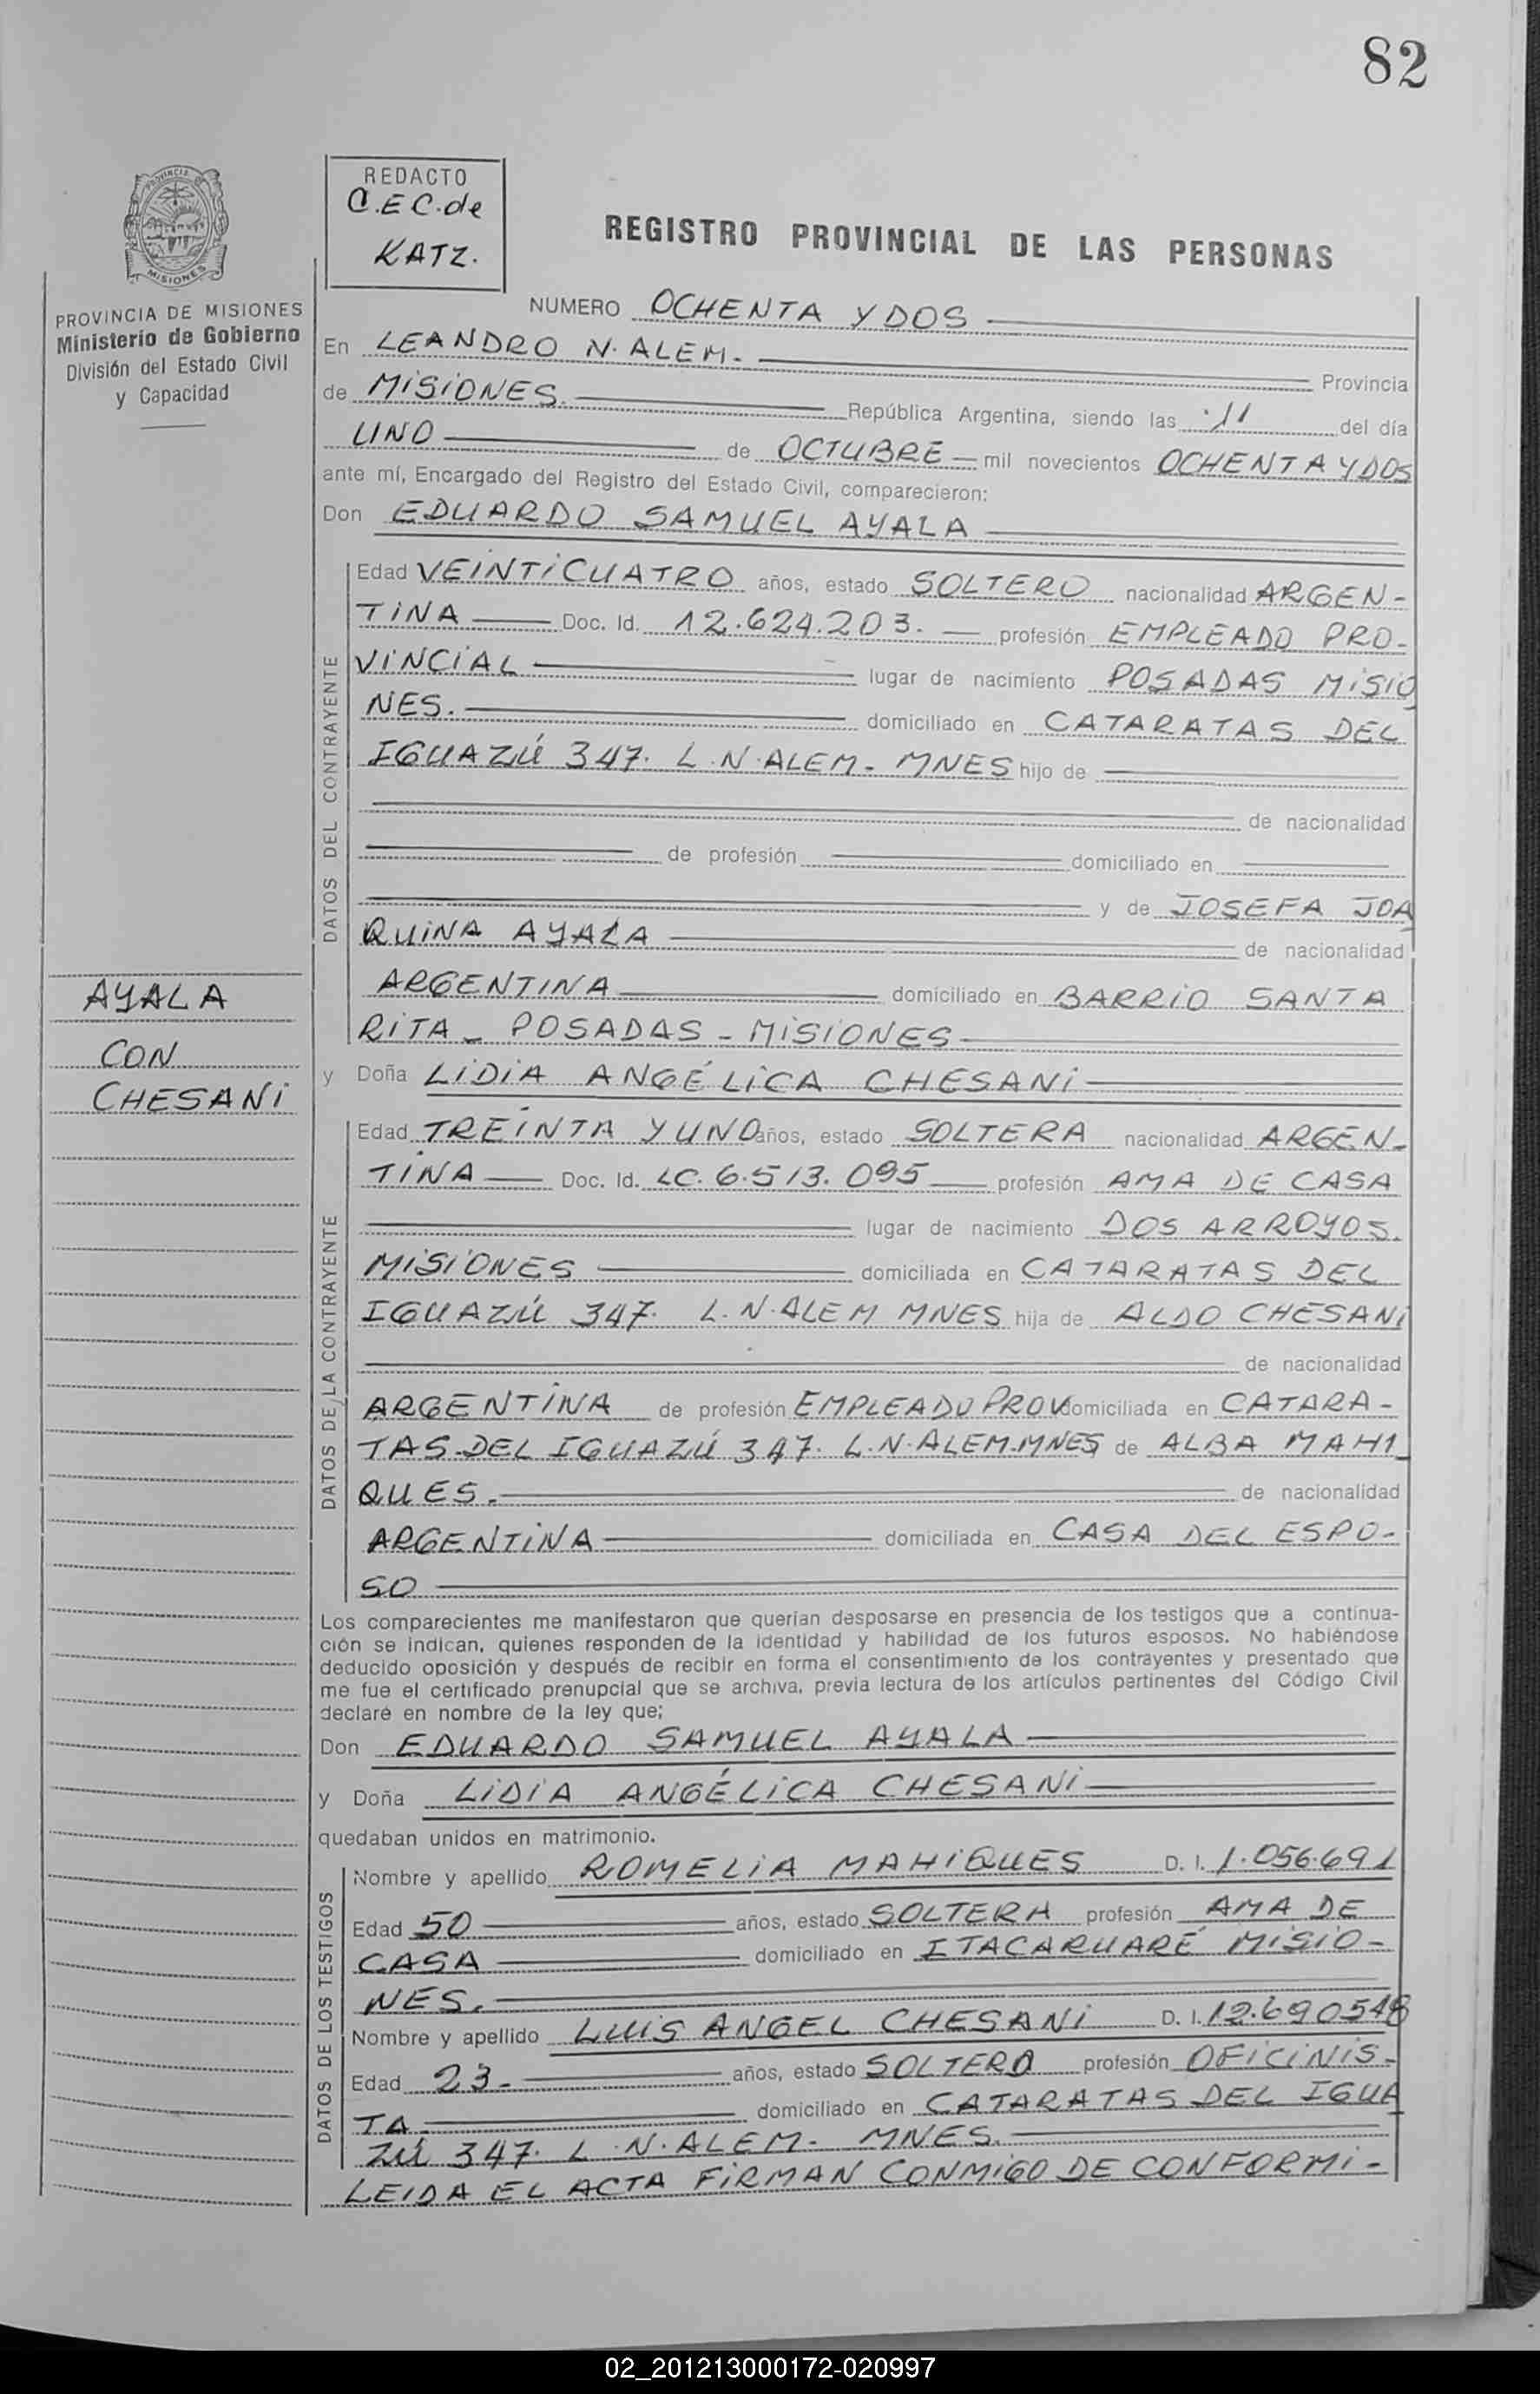 82
PROVINCIA DE MISIONES
Ministerio de Gobierno
División del Estado Civil
y Capacidad
REDACTO
C.E C. de
KATZ.
REGISTRO PROVINCIAL DE LAS PERSONAS
NUMERO OCHENTA Y DOS
En LEANDRO N. ALEM. Provincia
de MISIONES. República Argentina, siendo las 11 del día
UNO de OCTUBRE mil novecientos OCHENTA Y DOS
ante mí, Encargado del Registro del Estado Civil, comparecieron:
Don EDUARDO SAMUEL AYALA
DATOS DEL CONTRAYENTE
Edad VEINTICUATRO años, estado SOLTERO nacionalidad ARGEN-
TINA Doc. Id. 12.624.203. profesión EMPLEADO PRO-
VINCIAL lugar de nacimiento POSADAS MISIO
NES. domiciliado en CATARATAS DEL
IGUAZÚ 347. L.N.ALEM- MNES hijo de
de nacionalidad
de profesión domiciliado en
y de JOSEFA JOA
QUINA AYALA de nacionalidad
ARGENTINA domiciliado en BARRIO SANTA
RITA - POSADAS - MISIONES
AYALA
CON
CHESANI
y Doña LIDIA ANGÉLICA CHESANI
DATOS DE LA CONTRAYENTE
Edad TREINTA Y UNO años, estado SOLTERA nacionalidad ARGEN-
TINA Doc. Id. LC. 6.513.095 profesión AMA DE CASA
lugar de nacimiento DOS ARROYOS.
MISIONES domiciliada en CATARATAS DEL
IGUAZÚ 347. L.N.ALEM MNES hija de ALDO CHESANI
de nacionalidad
ARGENTINA de profesión EMPLEADO PROV domiciliada en CATARA-
TAS DEL IGUAZÚ 347. L.N.ALEM.MNES de ALBA MAHI
QUES. de nacionalidad
ARGENTINA domiciliada en CASA DEL ESPO-
SO
Los comparecientes me manifestaron que querían desposarse en presencia de los testigos que a continua-
ción se indican, quienes responden de la identidad y habilidad de los futuros esposos. No habiéndose
deducido oposición y después de recibir en forma el consentimiento de los contrayentes y presentado que
me fue el certificado prenupcial que se archiva, previa lectura de los artículos pertinentes del Código Civil
declaré en nombre de la ley que;
Don EDUARDO SAMUEL AYALA
y Doña LIDIA ANGÉLICA CHESANI
quedaban unidos en matrimonio.
DATOS DE LOS TESTIGOS
Nombre y apellido ROMELIA MAHIQUES D. I. 1.056.691
Edad 50 años, estado SOLTERA profesión AMA DE
CASA domiciliado en ITACARUARÉ MISIO-
NES.
Nombre y apellido LUIS ANGEL CHESANI D. I. 12.690548
Edad 23- años, estado SOLTERO profesión OFICINIS-
TA. domiciliado en CATARATAS DEL IGUA
ZÚ 347. L.N.ALEM- MNES.
LEIDA EL ACTA FIRMAN CONMIGO DE CONFORMI-
02_201213000172-020997